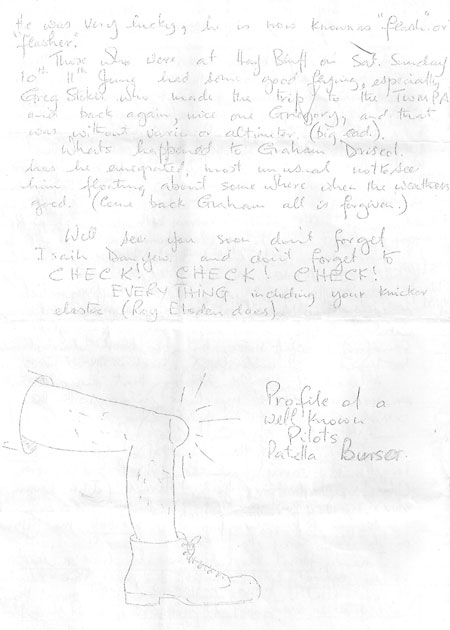 He was very lucky, he is now known as "flash" or
"flasher".
Those who were at Hay Bluff on Sat. Sunday
10th 11th had some good flying, especially
Greg who made the trip to the TWMPA
and back again, nice one Gregory, and that
was without vario or altimeter. (big ead.).
Whats happened to Graham Driscol.
has he emigrated, most unusual not to see
him floating about some where when the weathers
good. (Come back Graham all is forgiven.)
Well see you soon don't forget
and don't forget to
CHECK! CHECK! CHECK!
EVERYTHING including your knicker
elastic (Roy Elsdon does)
Profile of a
well known
Pilots
Patella